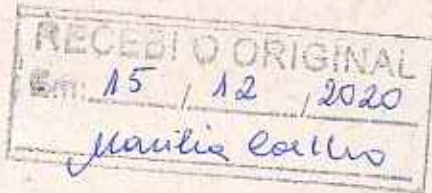 RECEBI O ORIGINAL
Em: 15 / 12 / 2020
Marilia Coelho